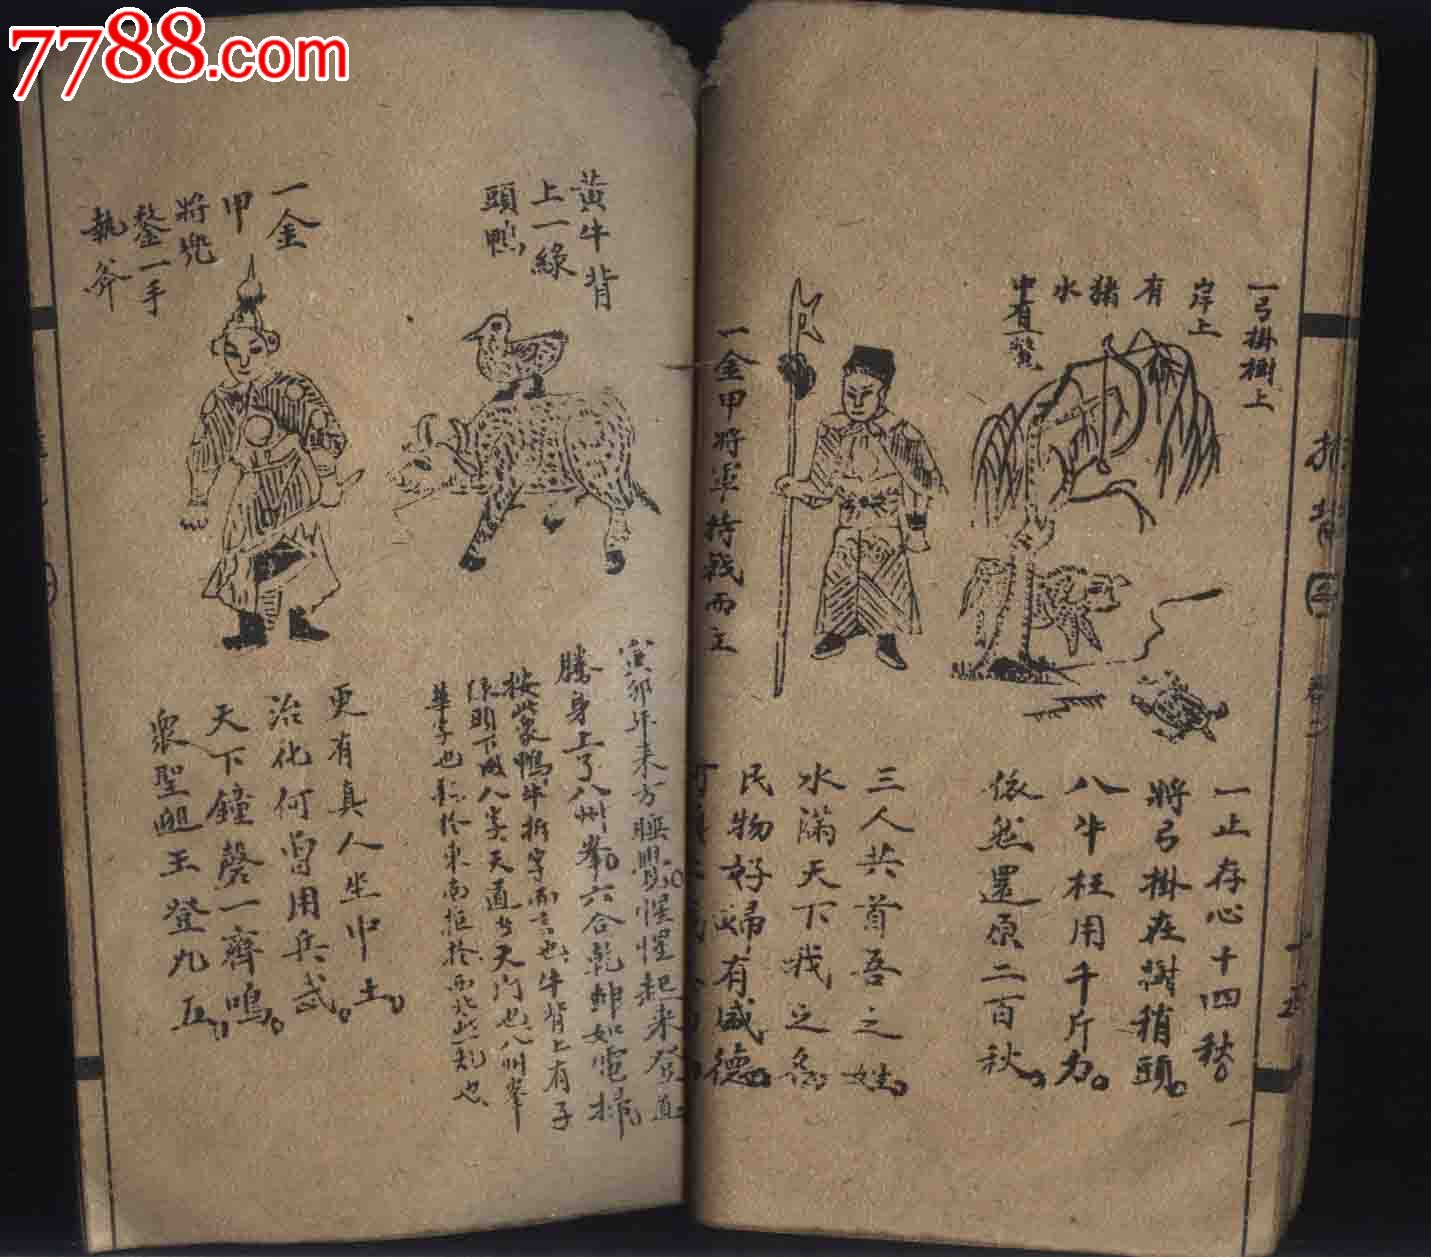 7788.com
一弓掛樹上
岸上
有
猪
水
中有一鱉
一止存心十四秋
將弓掛在樹稍頭
八牛枉用千斤力
依然還原二百秋
一金甲將軍持戟而立
三人共首吾之姓
水滿天下我之名
民物好歸有威德
黃牛背
上一綠
頭鴨
寅卯年來方睡覺惺惺起來登直
騰身上了八州峯六合乾坤如電掃
按此象鴨牛拆字而言也牛背上有子
天道当天門也八州峯
一金
甲
將兜
鍪一手
執斧
更有真人坐中土
治化何曾用兵武
天下鐘磬一齊鳴
衆聖迎王登九五